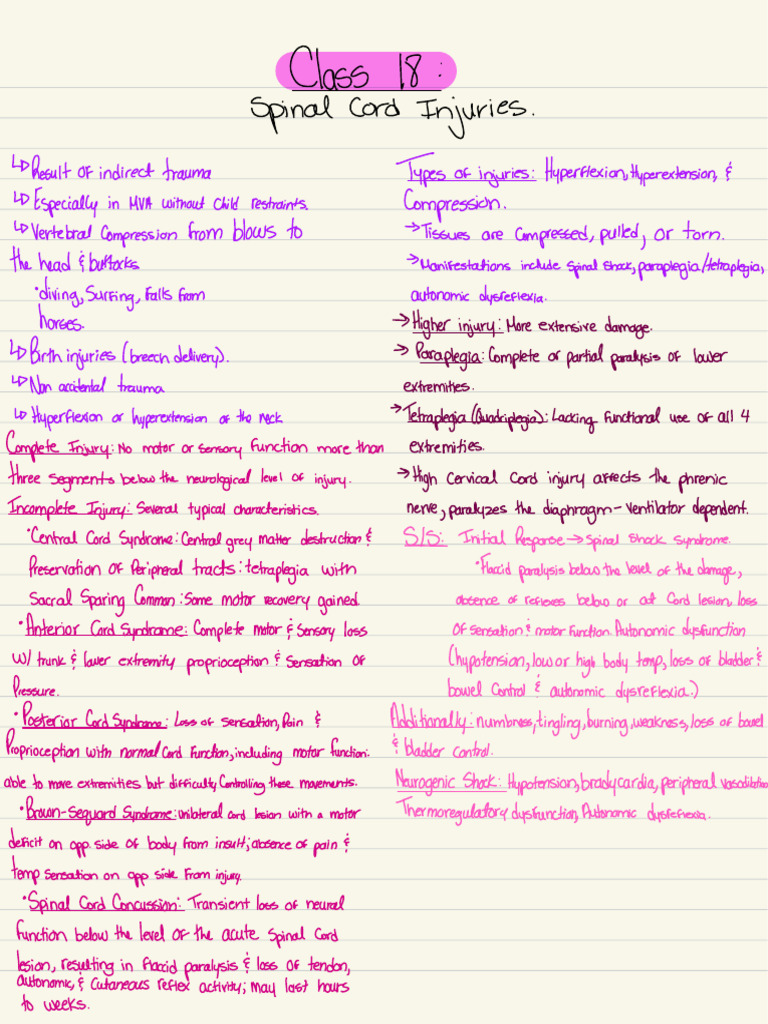 Class 18:
Spinal Cord Injuries.
↳ Result of indirect trauma
↳ Especially in MVA without child restraints.
↳ Vertebral Compression from blows to
the head & buttocks
• diving, Surfing, Falls from
horses.
↳ Birth injuries (breech delivery).
↳ Non accidental trauma
↳ Hyperflexion or hyperextension of the neck
Complete Injury: No motor or sensory function more than
three segments below the neurological level of injury.
Incomplete Injury: Several typical characteristics.
• Central Cord Syndrome: Central grey matter destruction &
Preservation of Peripheral tracts: tetraplegia with
Sacral Sparing Common: Some motor recovery gained
• Anterior Cord Syndrome: Complete motor & Sensory loss
w/ trunk & lower extremity proprioception & Sensation of
Pressure.
• Posterior Cord Syndrome: Loss of sensation, Pain &
Proprioception with normal Cord Function, including motor function:
able to move extremities but difficulty Controlling these movements.
• Brown-Sequard Syndrome: unilateral cord lesion with a motor
deficit on opp. side of body from insult; absence of pain &
temp sensation on opp side From injury.
• Spinal Cord Concussion: Transient loss of neural
function below the level of the acute Spinal Cord
lesion, resulting in flaccid paralysis & loss of tendon,
autonomic, & Cutaneous reflex activity; may last hours
to weeks.
Types of injuries: Hyperflexion, Hyperextension, &
Compression.
→ Tissues are compressed, pulled, or torn.
→ Manifestations include Spinal shock, paraplegia/tetraplegia,
autonomic dysreflexia.
→ Higher injury: More extensive damage.
→ Paraplegia: Complete or partial paralysis of lower
extremities.
→ Tetraplegia (Quadriplegia): Lacking functional use of all 4
extremities.
→ High Cervical Cord injury affects the phrenic
nerve, paralyzes the diaphragm - ventilator dependent.
S/S: Initial Response → Spinal Shock Syndrome.
• Flaccid paralysis below the level of the damage,
absence of reflexes below or at Cord lesion, loss
of sensation & motor function. Autonomic dysfunction
(hypotension, low or high body temp, loss of bladder &
bowel Control & autonomic dysreflexia.)
Additionally: numbness, tingling, burning, weakness, loss of bowel
& bladder control.
Neurogenic Shock: Hypotension, bradycardia, peripheral vasodilation
Thermoregulatory dysfunction, Autonomic dysreflexia.